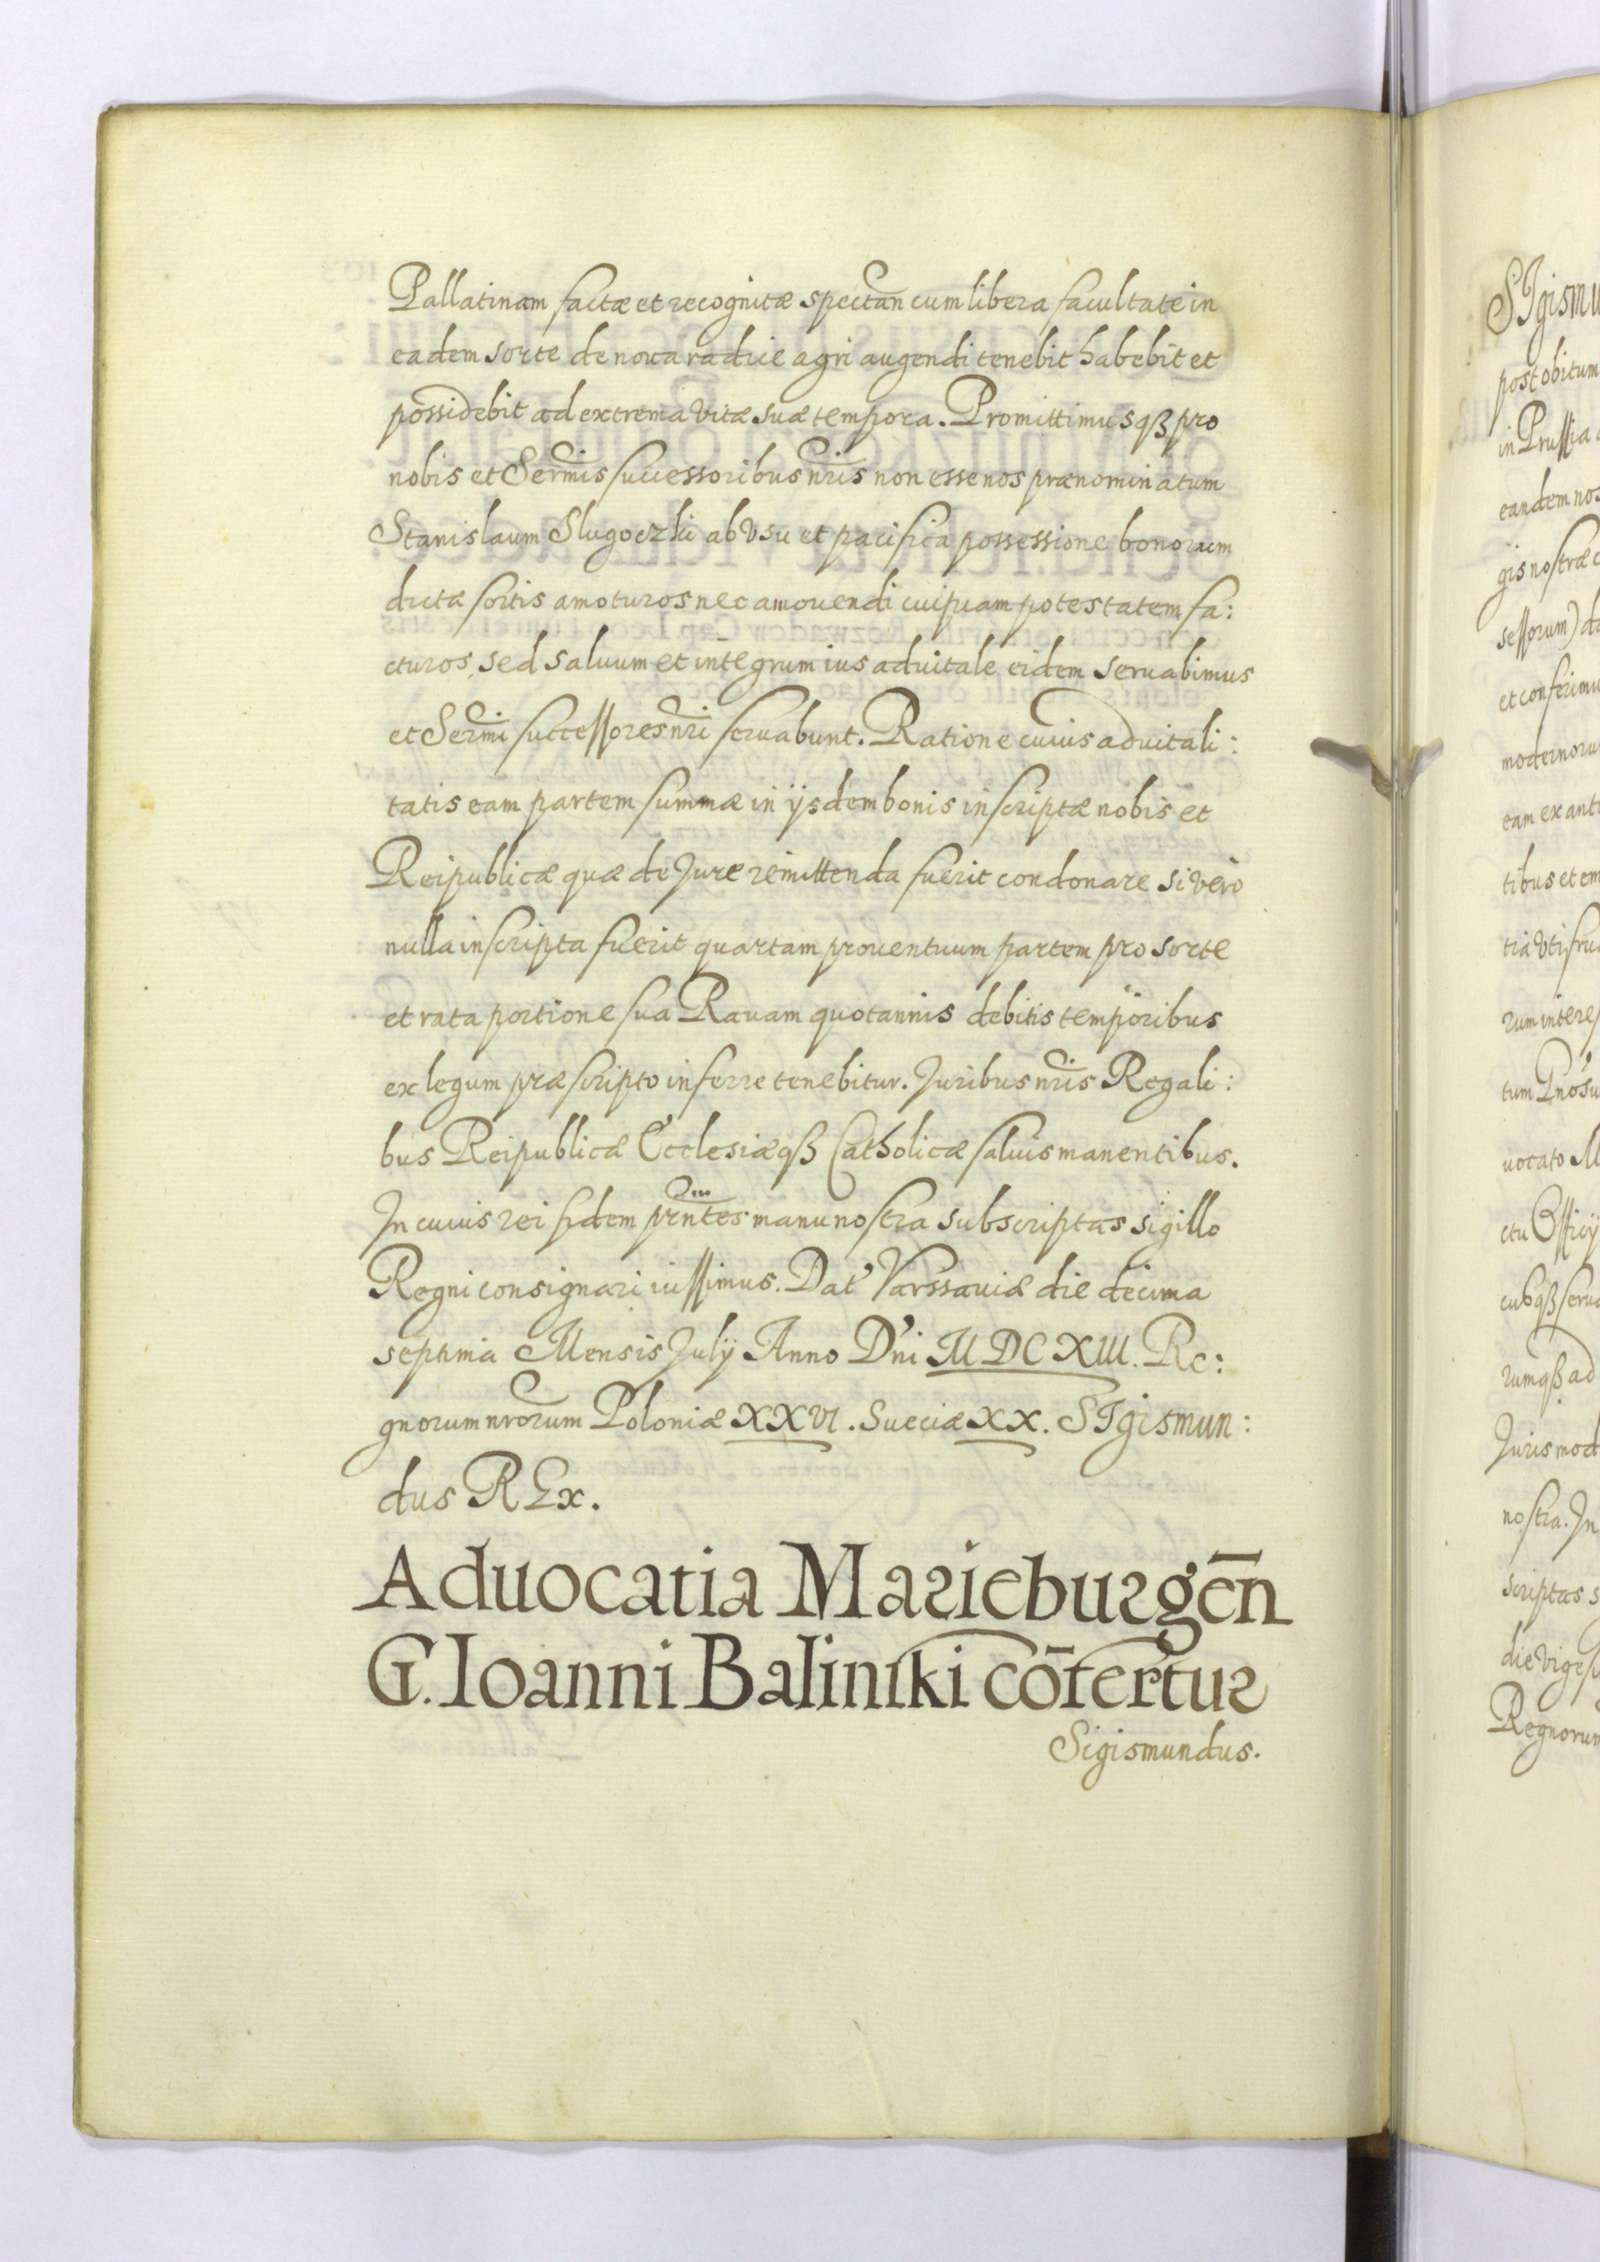 Pallatinam factæ et recognitæ spectan̄ cum libera facultate in
eadem sorte de noua radice agri augendi tenebit habebit et
possidebit ad extrema vitæ suæ tempora. Promittimusqȝ pro
nobis et Serm̄is successoribus nr̄is non esse nos prænominatum
Stanislaum Slugoczki ab vsu et pacifica possessione bonorum
dictæ sortis amoturos nec amouendi cuipiam potestatem fa:
cturos, sed saluum et integrum ius aduitale eidem seruabimus
et Serm̄i successores nr̄i seruabunt. Ratione cuius aduitali:
tatis eam partem summæ in ijsdem bonis inscriptæ nobis et
Reipublicæ quæ de Jure remittenda fuerit condonare si vero
nulla inscripta fuerit quartam prouentuum partem pro sorte
et rata portione sua Rauam quotannis debitis temporibus
ex legum præscripto inferre tenebitur. Juribus nr̄is Regali:
bus Reipublicæ Ecclesiæqȝ Catholicæ saluis manentibus.
In cuius rei fidem prn̄tes manu nostra subscriptas sigillo
Regni consignari iussimus. Dat' Varssauiæ die decima
septima Mensis Julij Anno D'ni MDCXIII. Re:
gnorum nrōrum Poloniæ XXVI. Sueciæ XX. SIgismun:
dus REx.
Aduocatia Marieburgen̄
G. Ioanni Balinſki cōfertur
Sigismundus.
SIgismu
post obitum
in Prussia
eandem nos
gis nostræ c
sessorum) da
et conferimu
modernoru
eam ex anti
tibus et em
tia vti fru
rum interes
tum
uocato M
ctu Officij
cubqȝ serua
rumqȝ ad
Juris mod
nostra. In
scriptas s
die vigesi
Regnorum